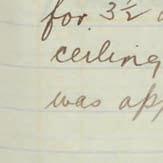 for 3½
ceiling
was app